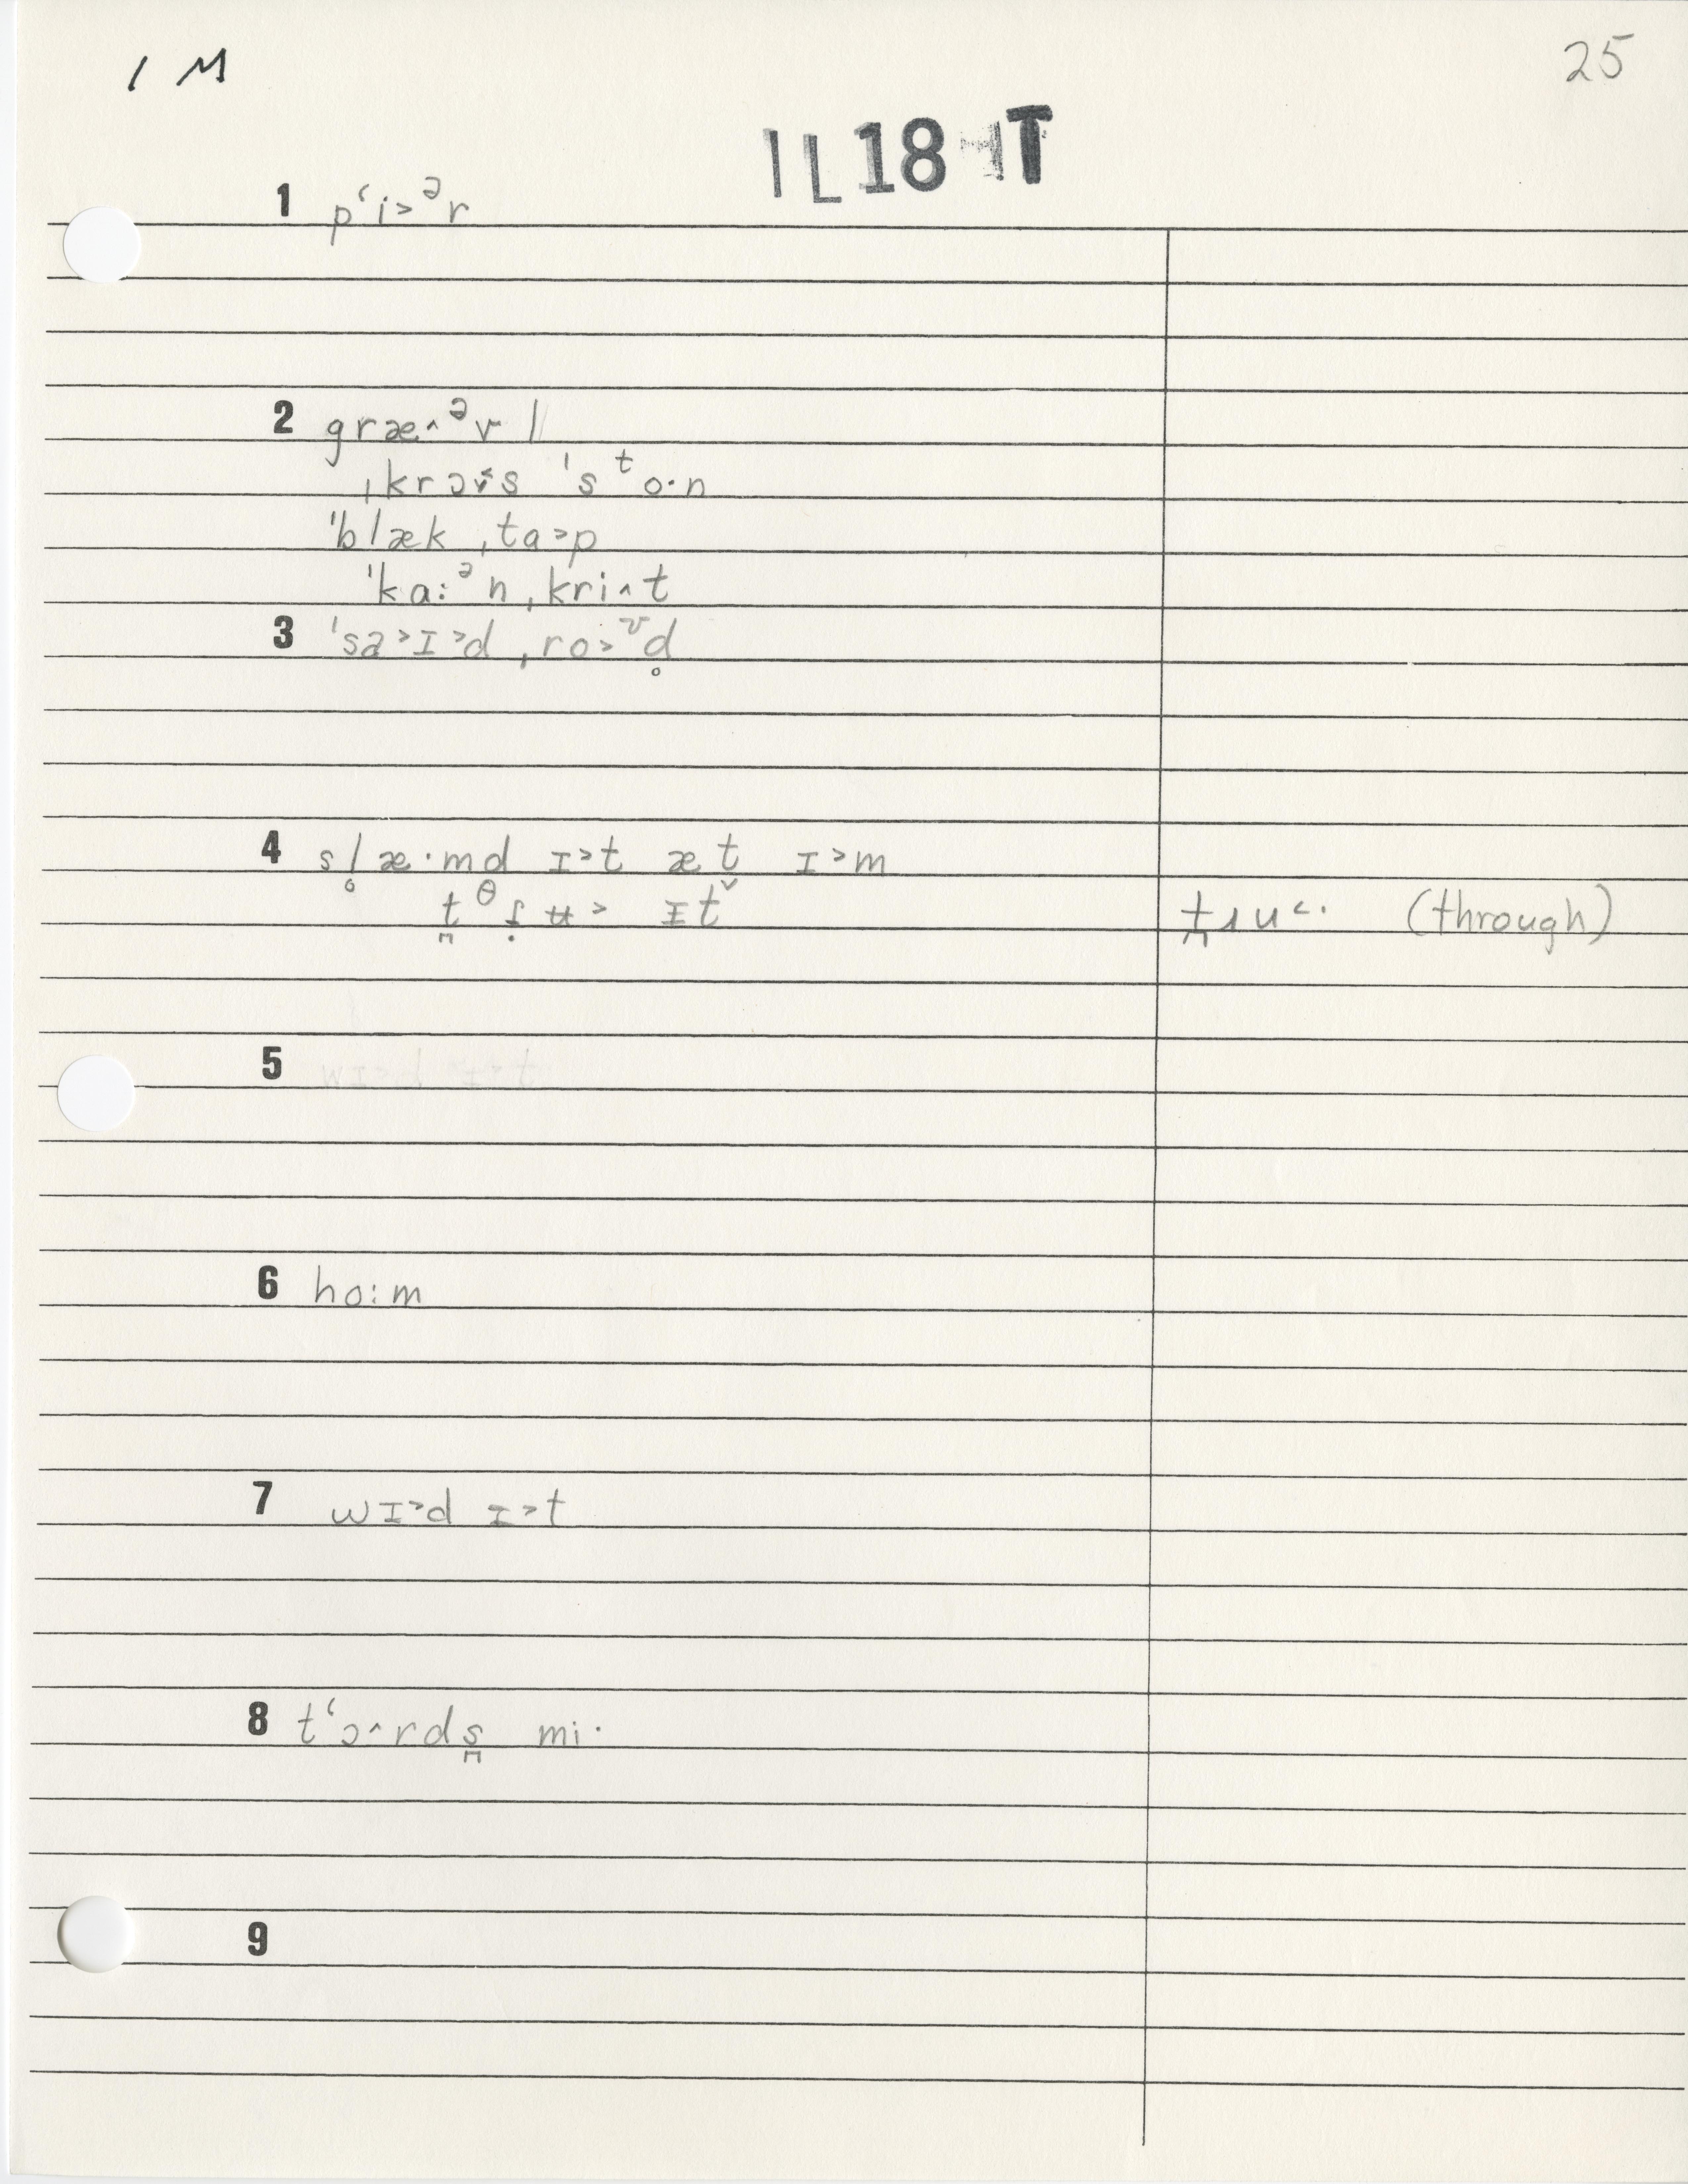 1 M
25
1L18 HT
1 pʻi˃ᵊr
2 græ˄ᵊvl
ˌkrɔ˅˂s ˈsᵗo·n
ˈblæk ˌta˃p
ˈka:ᵊnˌkri˄t
3 ˈsa˃ɪ˃d ˌro˃ᶹd̥
4 sl̥æ·md ɪ˃t æt ɪ˃m
ɪt̬
t̪ɹu˂· (through)
5
6 ho:m
7 wɪ˃d ɪ˃t
8 tʻɔ˄rds̪ mi·
9